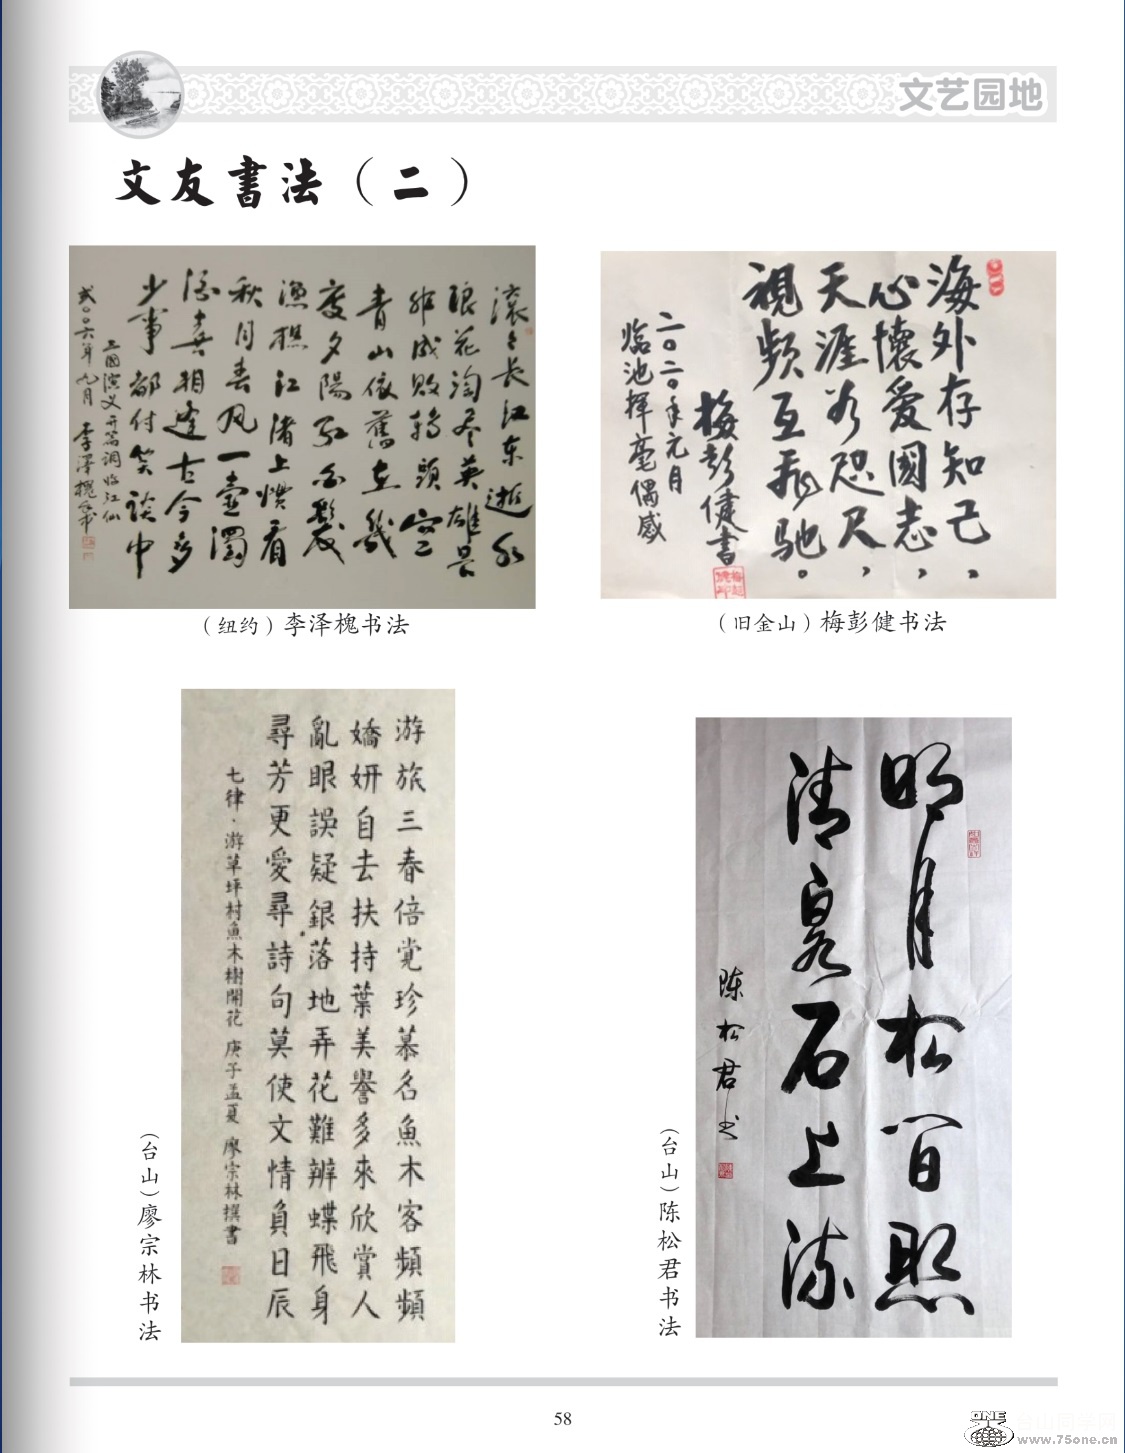 文艺园地
文友書法（二）
滚々长江东逝水
浪花淘尽英雄是
非成败转頭空
青山依舊在幾
度夕陽红白髮
渔樵江渚上惯看
秋月春风一壶濁
酒喜相逢古今多
少事都付笑談中
三國演义开篇词临江仙
弍〇〇六年九月 李澤槐书
（纽约）李泽槐书法
海外存知己，
心懷爱國志，
天涯若咫尺，
視频互飛驰。
梅彭健書
二〇二〇年元月
临池揮毫偶感
（旧金山）梅彭健书法
游旅三春倍覚珍慕名魚木客頻頻
嬌妍自去扶持葉美譽多來欣賞人
亂眼誤疑銀落地弄花難辨蝶飛身
尋芳更愛尋詩句莫使文情負日辰
七律·游草坪村魚木樹開花 庚子孟夏 廖宗林撰書
（台山）廖宗林书法
明月松间照
清泉石上流
陈松君书
（台山）陈松君书法
58
ONE
台山同学网
www.75one.cn